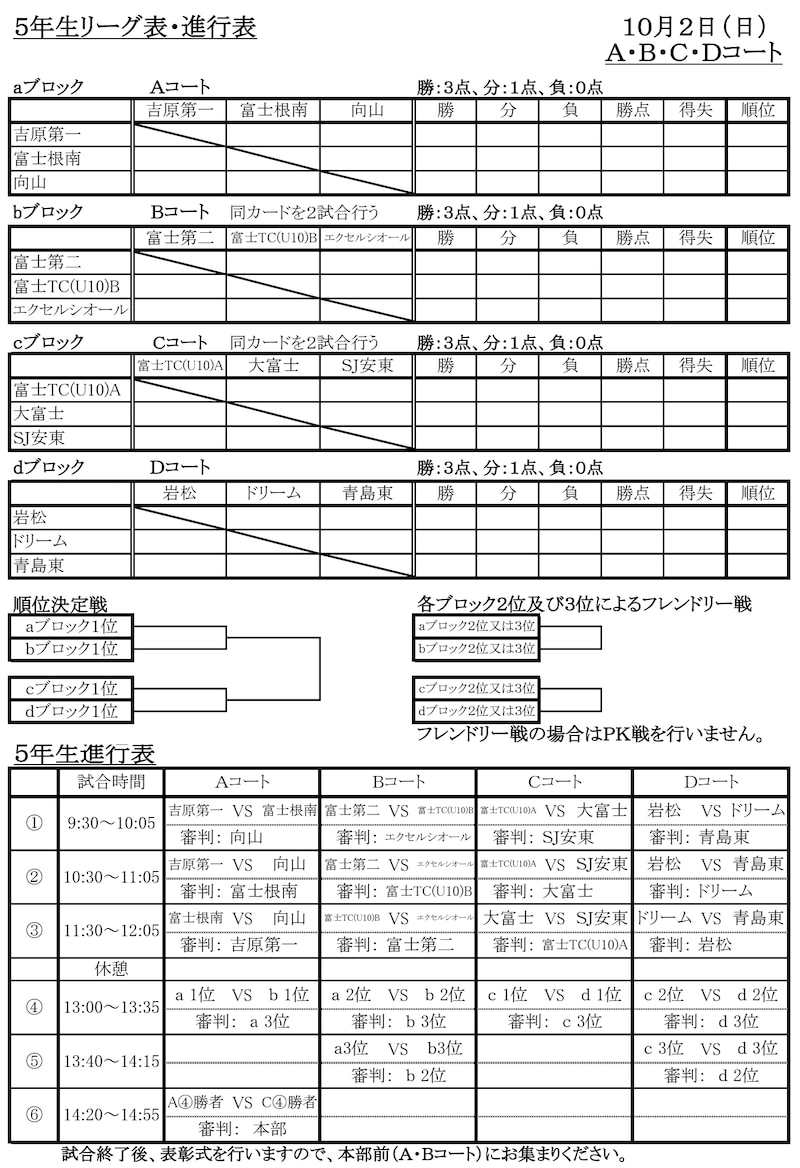 5年生リーグ表・進行表 10月2日(日)
A・B・C・Dコート
aブロック Aコート 勝:3点、分:1点、負:0点
吉原第一 富士根南 向山 勝 分 負 勝点 得失 順位
吉原第一
富士根南
向山
bブロック Bコート 同カードを2試合行う 勝:3点、分:1点、負:0点
富士第二 富士TC(U10)B エクセルシオール 勝 分 負 勝点 得失 順位
富士第二
富士TC(U10)B
エクセルシオール
cブロック Cコート 同カードを2試合行う 勝:3点、分:1点、負:0点
富士TC(U10)A 大富士 SJ安東 勝 分 負 勝点 得失 順位
富士TC(U10)A
大富士
SJ安東
dブロック Dコート 勝:3点、分:1点、負:0点
岩松 ドリーム 青島東 勝 分 負 勝点 得失 順位
岩松
ドリーム
青島東
順位決定戦 各ブロック2位及び3位によるフレンドリー戦
aブロック1位 aブロック2位又は3位
bブロック1位 bブロック2位又は3位
cブロック1位 cブロック2位又は3位
dブロック1位 dブロック2位又は3位
フレンドリー戦の場合はPK戦を行いません。
5年生進行表
試合時間 Aコート Bコート Cコート Dコート
① 9:30~10:05 吉原第一 VS 富士根南 富士第二 VS 富士TC(U10)B 富士TC(U10)A VS 大富士 岩松 VS ドリーム
審判: 向山 審判: エクセルシオール 審判: SJ安東 審判: 青島東
② 10:30~11:05 吉原第一 VS 向山 富士第二 VS エクセルシオール 富士TC(U10)A VS SJ安東 岩松 VS 青島東
審判: 富士根南 審判: 富士TC(U10)B 審判: 大富士 審判: ドリーム
③ 11:30~12:05 富士根南 VS 向山 富士TC(U10)B VS エクセルシオール 大富士 VS SJ安東 ドリーム VS 青島東
審判: 吉原第一 審判: 富士第二 審判: 富士TC(U10)A 審判: 岩松
休憩
④ 13:00~13:35 a 1位 VS b 1位 a 2位 VS b 2位 c 1位 VS d 1位 c 2位 VS d 2位
審判: a 3位 審判: b 3位 審判: c 3位 審判: d 3位
⑤ 13:40~14:15 a3位 VS b3位 c 3位 VS d 3位
審判: b 2位 審判: d 2位
⑥ 14:20~14:55 A④勝者 VS C④勝者
審判: 本部
試合終了後、表彰式を行いますので、本部前(A・Bコート)にお集まりください。